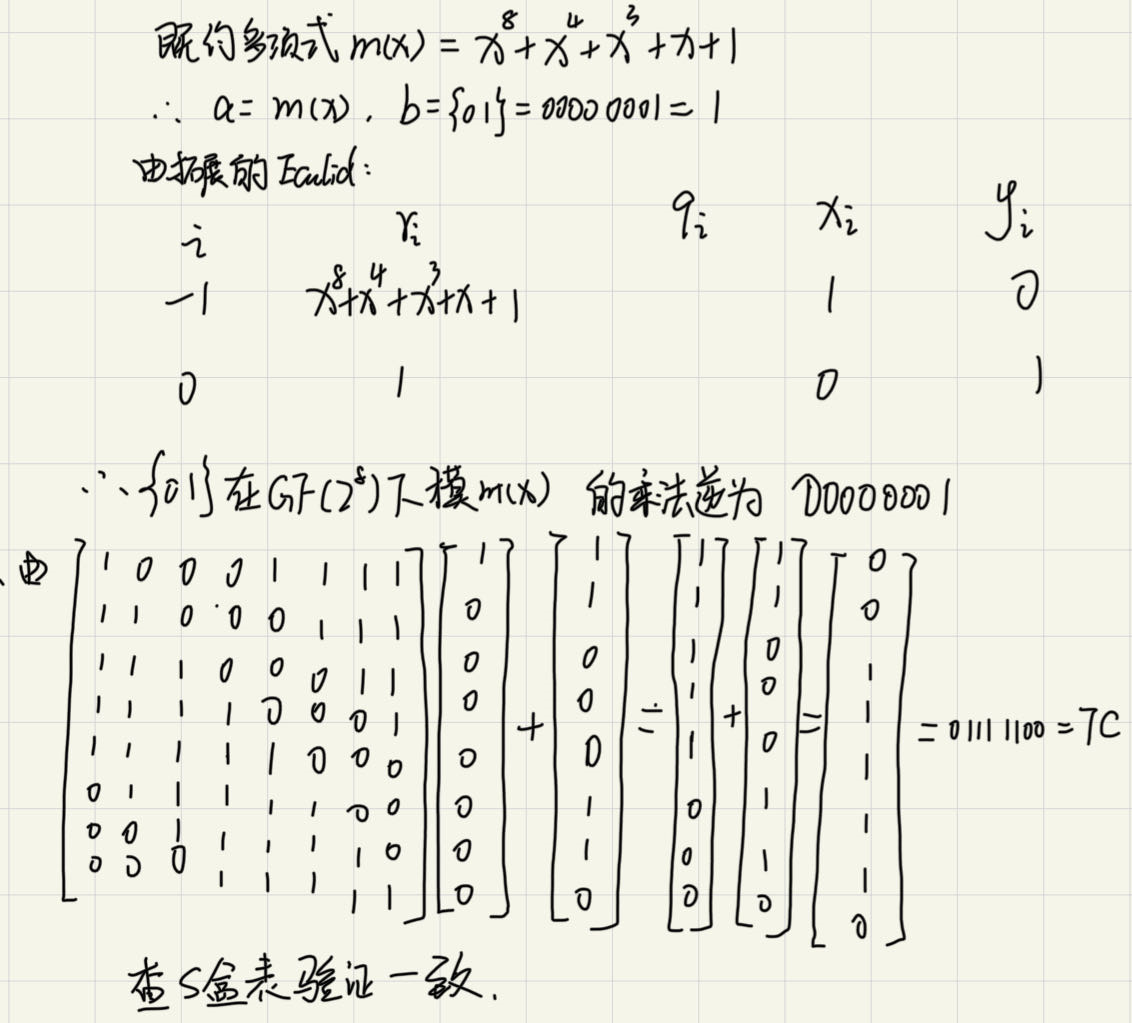 既约多项式 m(x) = x⁸+x⁴+x³+x+1
∴ a = m(x), b={01}=00000001=1
由拓展的 Euclid:
i rᵢ qᵢ xᵢ yᵢ
-1 x⁸+x⁴+x³+x+1 1 0
0 1 0 1
∴{01}在GF(2⁸)下模m(x) 的乘法逆为 00000001
由 [1 0 0 0 1 1 1 1] [1] [1] [1] [1] [0]
[1 1 0 0 0 1 1 1] [0] [1] [1] [1] [0]
[1 1 1 0 0 0 1 1] [0] [0] [1] [0] [1]
[1 1 1 1 0 0 0 1] [0] + [0] = [1] + [0] = [1] = 01111100 = 7C
[1 1 1 1 1 0 0 0] [0] [0] [1] [0] [1]
[0 1 1 1 1 1 0 0] [0] [1] [0] [1] [1]
[0 0 1 1 1 1 1 0] [0] [1] [0] [1] [1]
[0 0 0 1 1 1 1 1] [0] [0] [0] [0] [0]
查S盒表验证一致.